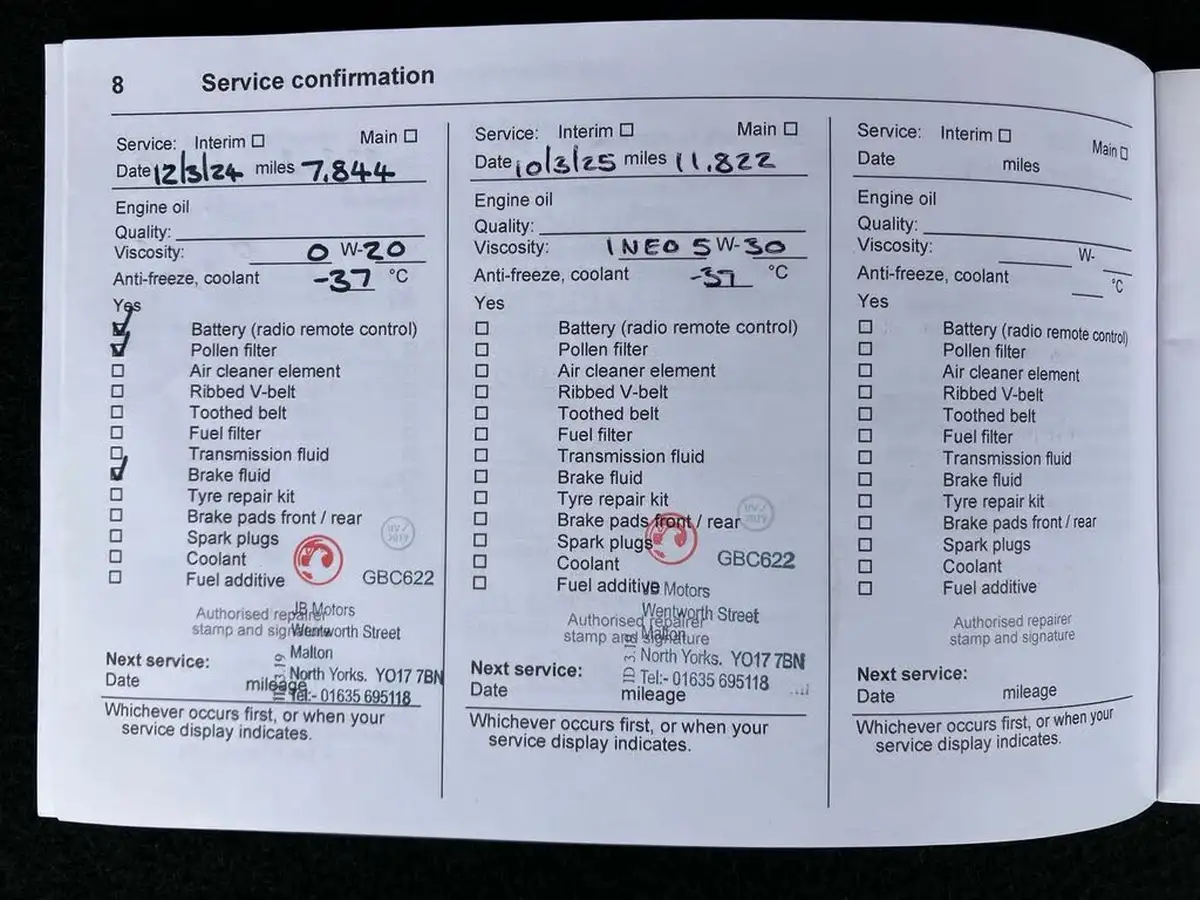 8 Service confirmation
Service: Interim ☐ Main ☐
Date 12/3/24 miles 7,844
Engine oil
Quality:
Viscosity: 0 W-20
Anti-freeze, coolant -37 °C
Yes
☑ Battery (radio remote control)
☑ Pollen filter
☐ Air cleaner element
☐ Ribbed V-belt
☐ Toothed belt
☐ Fuel filter
☐ Transmission fluid
☑ Brake fluid
☐ Tyre repair kit
☐ Brake pads front / rear
☐ Spark plugs
☐ Coolant
☐ Fuel additive
UV✓
2019
GBC622
Authorised repairer
stamp and signature
JB Motors
Wentworth Street
Malton
North Yorks. YO17 7BN
Tel:- 01635 695118
Next service:
Date mileage
Whichever occurs first, or when your
service display indicates.
Service: Interim ☐ Main ☐
Date 10/3/25 miles 11,822
Engine oil
Quality:
Viscosity: INEO 5 W-30
Anti-freeze, coolant -37 °C
Yes
☐ Battery (radio remote control)
☐ Pollen filter
☐ Air cleaner element
☐ Ribbed V-belt
☐ Toothed belt
☐ Fuel filter
☐ Transmission fluid
☐ Brake fluid
☐ Tyre repair kit
☐ Brake pads front / rear
☐ Spark plugs
☐ Coolant
☐ Fuel additive
UV✓
2019
GBC622
Authorised repairer
stamp and signature
JB Motors
Wentworth Street
Malton
North Yorks. YO17 7BN
Tel:- 01635 695118
ID 3.19
Next service:
Date mileage
Whichever occurs first, or when your
service display indicates.
Service: Interim ☐ Main ☐
Date miles
Engine oil
Quality:
Viscosity: W-
Anti-freeze, coolant °C
Yes
☐ Battery (radio remote control)
☐ Pollen filter
☐ Air cleaner element
☐ Ribbed V-belt
☐ Toothed belt
☐ Fuel filter
☐ Transmission fluid
☐ Brake fluid
☐ Tyre repair kit
☐ Brake pads front / rear
☐ Spark plugs
☐ Coolant
☐ Fuel additive
Authorised repairer
stamp and signature
Next service:
Date mileage
Whichever occurs first, or when your
service display indicates.